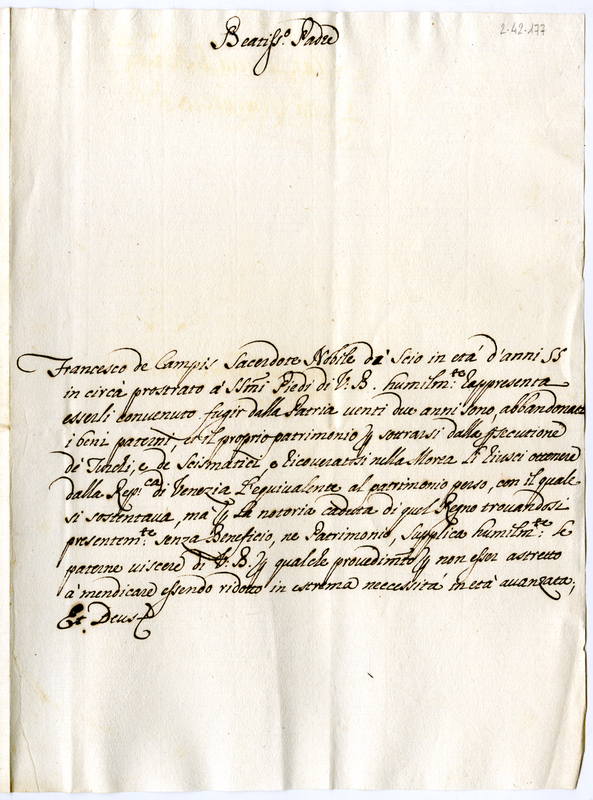 Beatiss.º Padre
2-42-177
Francesco de Campis Sacerdote Nobile di Scio in età d'anni 55
in circa prostrato a' SSmi Piedi di V. B. humilm.te rappresenta
esserli convenuto fugir dalla Patria venti due anni sono, abbandonati
i beni paterni, et il proprio patrimonio p sottrarsi dalla psecutione
de' Turchi, e de Scismatici, e ricoveratosi nella Morea li riusci ottenere
dalla Rep.ca di Venezia l'equivalente al patrimonio perso, con il quale
si sostentava, ma p la notoria caduta di quel Regno trovandosi
presentem.te senza Beneficio, ne Patrimonio, Supplica humilm.te le
paterne viscere di V. B. p qualche provedimto p non esser astretto
à mendicare essendo ridotto in estrema neccessità in età avanzata;
Et Deus